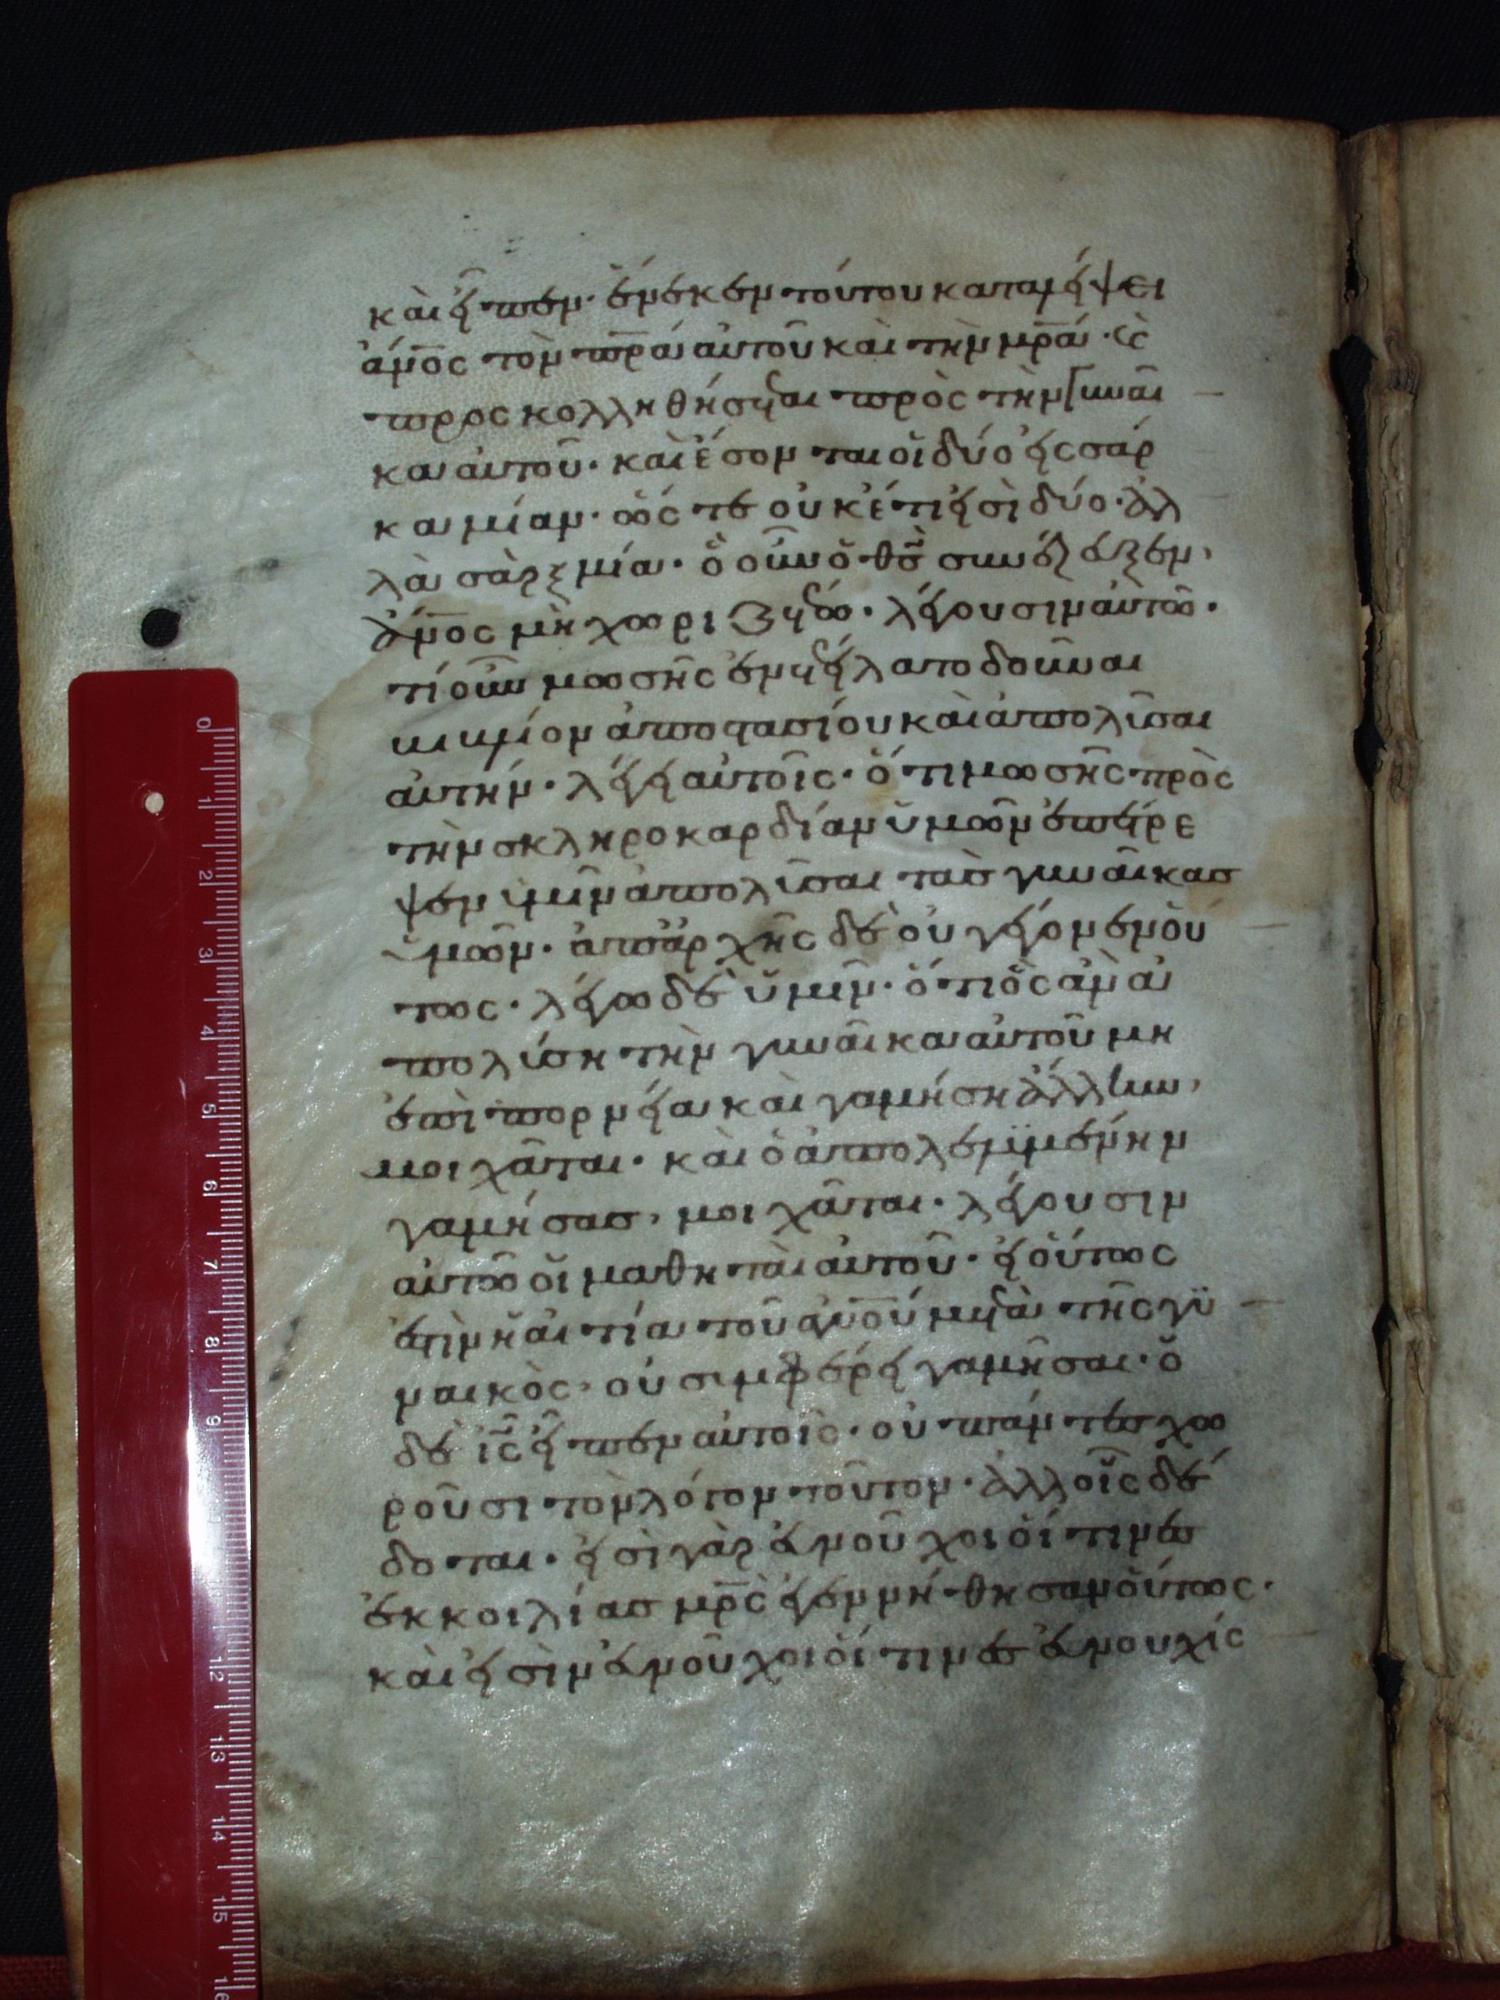 καὶ εἶπεν· ἕνεκεν τούτου καταλήψει
ἄν̅ος τὸν π̅ρα αὐτοῦ καὶ τὴν μ̅ρα· κ̀ς
προσκολληθήσεται πρὸς τὴν γυναῖ
κα αὐτοῦ· καὶ ἔσονται οἱ δύο εἰς σάρ
κα μίαν· ὥστε οὐκέτι εἰσὶ δύο· ἀλ
λὰ σὰρξ μία· ὃ οὖν ὁ θ̅ς συνέζευξεν,
ἄν̅ος μὴ χωριζέτω· λέγουσιν αὐτῶ·
τί οὖν μωσῆς ἐνετείλατο δοῦναι
βιβλίον ἀποστασίου καὶ ἀπολῦσαι
αὐτήν· λέγει αὐτοῖς· ὅτι μωσῆς πρὸς
τὴν σκληροκαρδίαν ὑμῶν ἐπέτρε
ψεν ὑμῖν ἀπολῦσαι τὰσ γυναῖκασ
ὑμῶν· ἀπαρχῆς δὲ οὐ γέγονεν οὕ
τως· λέγω δὲ ὑμῖν· ὅτι ὃς ἂν ἀ
πολύση τὴν γυναῖκα αὐτοῦ μὴ
ἐπὶ πορνεία καὶ γαμήση ἄλλην,
μοιχᾶται· καὶ ὁ ἀπολελυμένην
γαμήσασ, μοιχᾶται· λέγουσιν
αὐτῶ οἱ μαθηταὶ αὐτοῦ· εἰ οὕτως
ἐστὶν ἡ αἰτία τοῦ ἀν̅ου μετὰ τῆς γυ
ναικὸς, οὐ συμφέρει γαμῆσαι· ὁ
δὲ ι̅ς εἶπεν αὐτοῖς· οὐ πάντεσ χω
ροῦσι τὸν λόγον τοῦτον· ἀλλ οἷς δέ
δοται· εἰσὶ γὰρ εὐνοῦχοι οἵτινεσ
ἐκ κοιλίασ μ̅ρς ἐγεννήθησαν οὕτως·
καὶ εἰσὶν εὐνοῦχοι οἵτινεσ εὐνουχίς